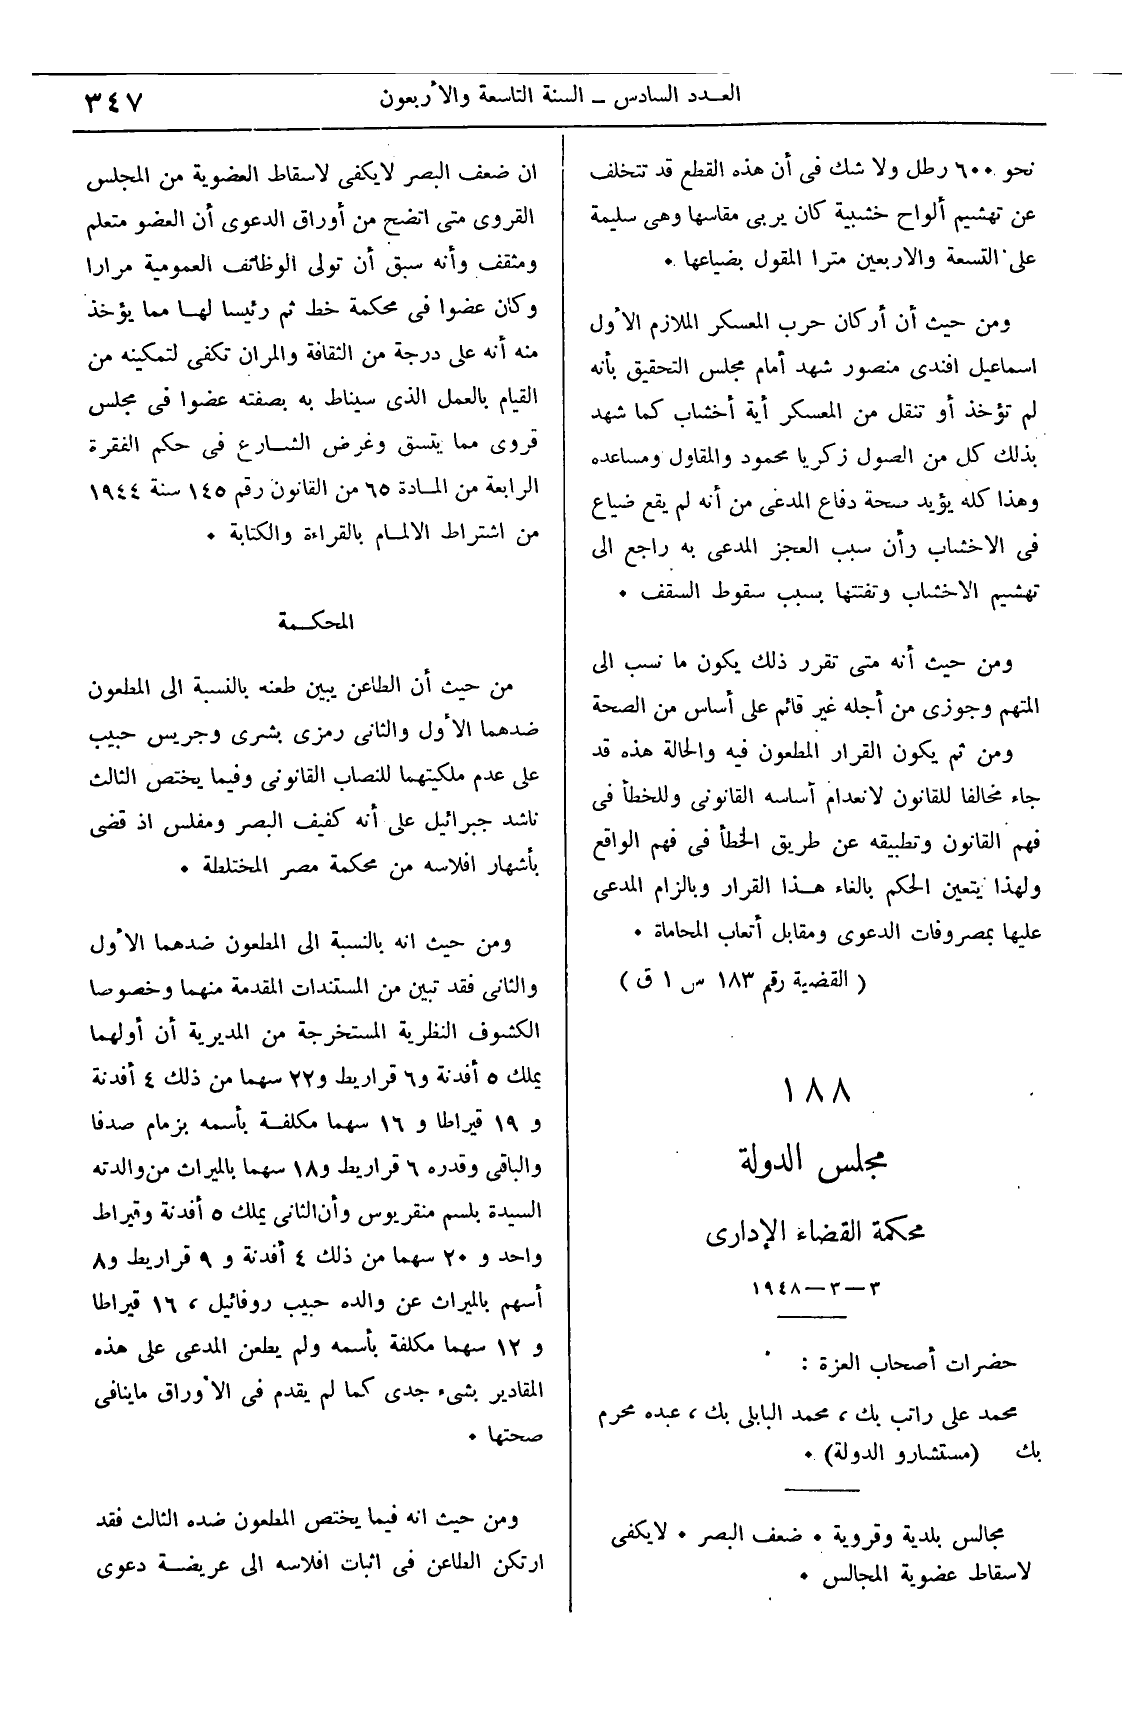 العـدد السادس ــ السنة التاسعة والأربعون
٣٤٧
نحو ٦٠٠ رطل ولا شك فى أن هذه القطع قد تتخلف
عن تهشيم ألواح خشبية كان يربى مقاسها وهى سليمة
على التسعة والاربعين مترا المقول بضياعها ٠
ومن حيث أن أركان حرب المعسكر الملازم الأول
اسماعيل افندى منصور شهد أمام مجلس التحقيق بأنه
لم تؤخذ أو تنقل من المعسكر أية أخشاب كما شهد
بذلك كل من الصول زكريا محمود والمقاول ومساعده
وهذا كله يؤيد صحة دفاع المدعى من أنه لم يقع ضياع
فى الاخشاب رأن سبب العجز المدعى به راجع الى
تهشيم الاخشاب وتفتتها بسبب سقوط السقف ٠
ومن حيث أنه متى تقرر ذلك يكون ما نسب الى
المتهم وجوزى من أجله غير قائم على أساس من الصحة
ومن ثم يكون القرار المطعون فيه والحالة هذه قد
جاء مخالفا للقانون لانعدام أساسه القانونى وللخطأ فى
فهم القانون وتطبيقه عن طريق الخطأ فى فهم الواقع
ولهذا يتعين الحكم بالغاء هـذا القرار وبالزام المدعى
عليها بمصروفات الدعوى ومقابل أتعاب المحاماة ٠
( القضية رقم ١٨٣ س ١ ق )
١٨٨
مجلس الدولة
محكمة القضاء الإدارى
٣ – ٣ – ١٩٤٨
حضرات أصحاب العزة :
محمد على راتب بك ، محمد البابلى بك ، عبده محرم
بك (مستشارو الدولة) ٠
مجالس بلدية وقروية ٠ ضعف البصر ٠ لايكفى
لاسقاط عضوية المجالس ٠
ان ضعف البصر لايكفى لاسقاط العضوية من المجلس
القروى متى اتضح من أوراق الدعوى أن العضو متعلم
ومثقف وأنه سبق أن تولى الوظائف العمومية مرارا
وكان عضوا فى محكمة خط ثم رئيسا لهـا مما يؤخذ
منه أنه على درجة من الثقافة والمران تكفى لتمكينه من
القيام بالعمل الذى سيناط به بصفته عضوا فى مجلس
قروى مما يتسق وغرض الشـارع فى حكم الفقرة
الرابعة من المـادة ٦٥ من القانون رقم ١٤٥ سنة ١٩٤٤
من اشتراط الالمـام بالقراءة والكتابة ٠
المحكـــمة
من حيث أن الطاعن يبين طعنه بالنسبة الى المطعون
ضدهما الأول والثانى رمزى بشرى وجريس حبيب
على عدم ملكيتهما للنصاب القانونى وفيما يختص الثالث
ناشد جبرائيل على أنه كفيف البصر ومفلس اذ قضى
بأشهار افلاسه من محكمة مصر المختلطة ٠
ومن حيث انه بالنسبة الى المطعون ضدهما الأول
والثانى فقد تبين من المستندات المقدمة منهما وخصوصا
الكشوف النظرية المستخرجة من المديرية أن أولهما
يملك ٥ أفدنة و٦ قراريط و٢٢ سهما من ذلك ٤ أفدنة
و ١٩ قيراطا و ١٦ سهما مكلفـة بأسمه بزمام صدفا
والباقى وقدره ٦ قراريط و١٨ سهما بالميراث من والدته
السيدة بلسم منقريوس وأن الثانى يملك ٥ أفدنة وقيراط
واحد و ٢٠ سهما من ذلك ٤ أفدنة و ٩ قراريط و٨
أسهم بالميراث عن والده حبيب روفائيل ، ١٦ قيراطا
و ١٢ سهما مكلفة بأسمه ولم يطعن المدعى على هذه
المقادير بشىء جدى كما لم يقدم فى الأوراق ماينافى
صحتها ٠
ومن حيث انه فيما يختص المطعون ضده الثالث فقد
ارتكن الطاعن فى اثبات افلاسه الى عريضـة دعوى